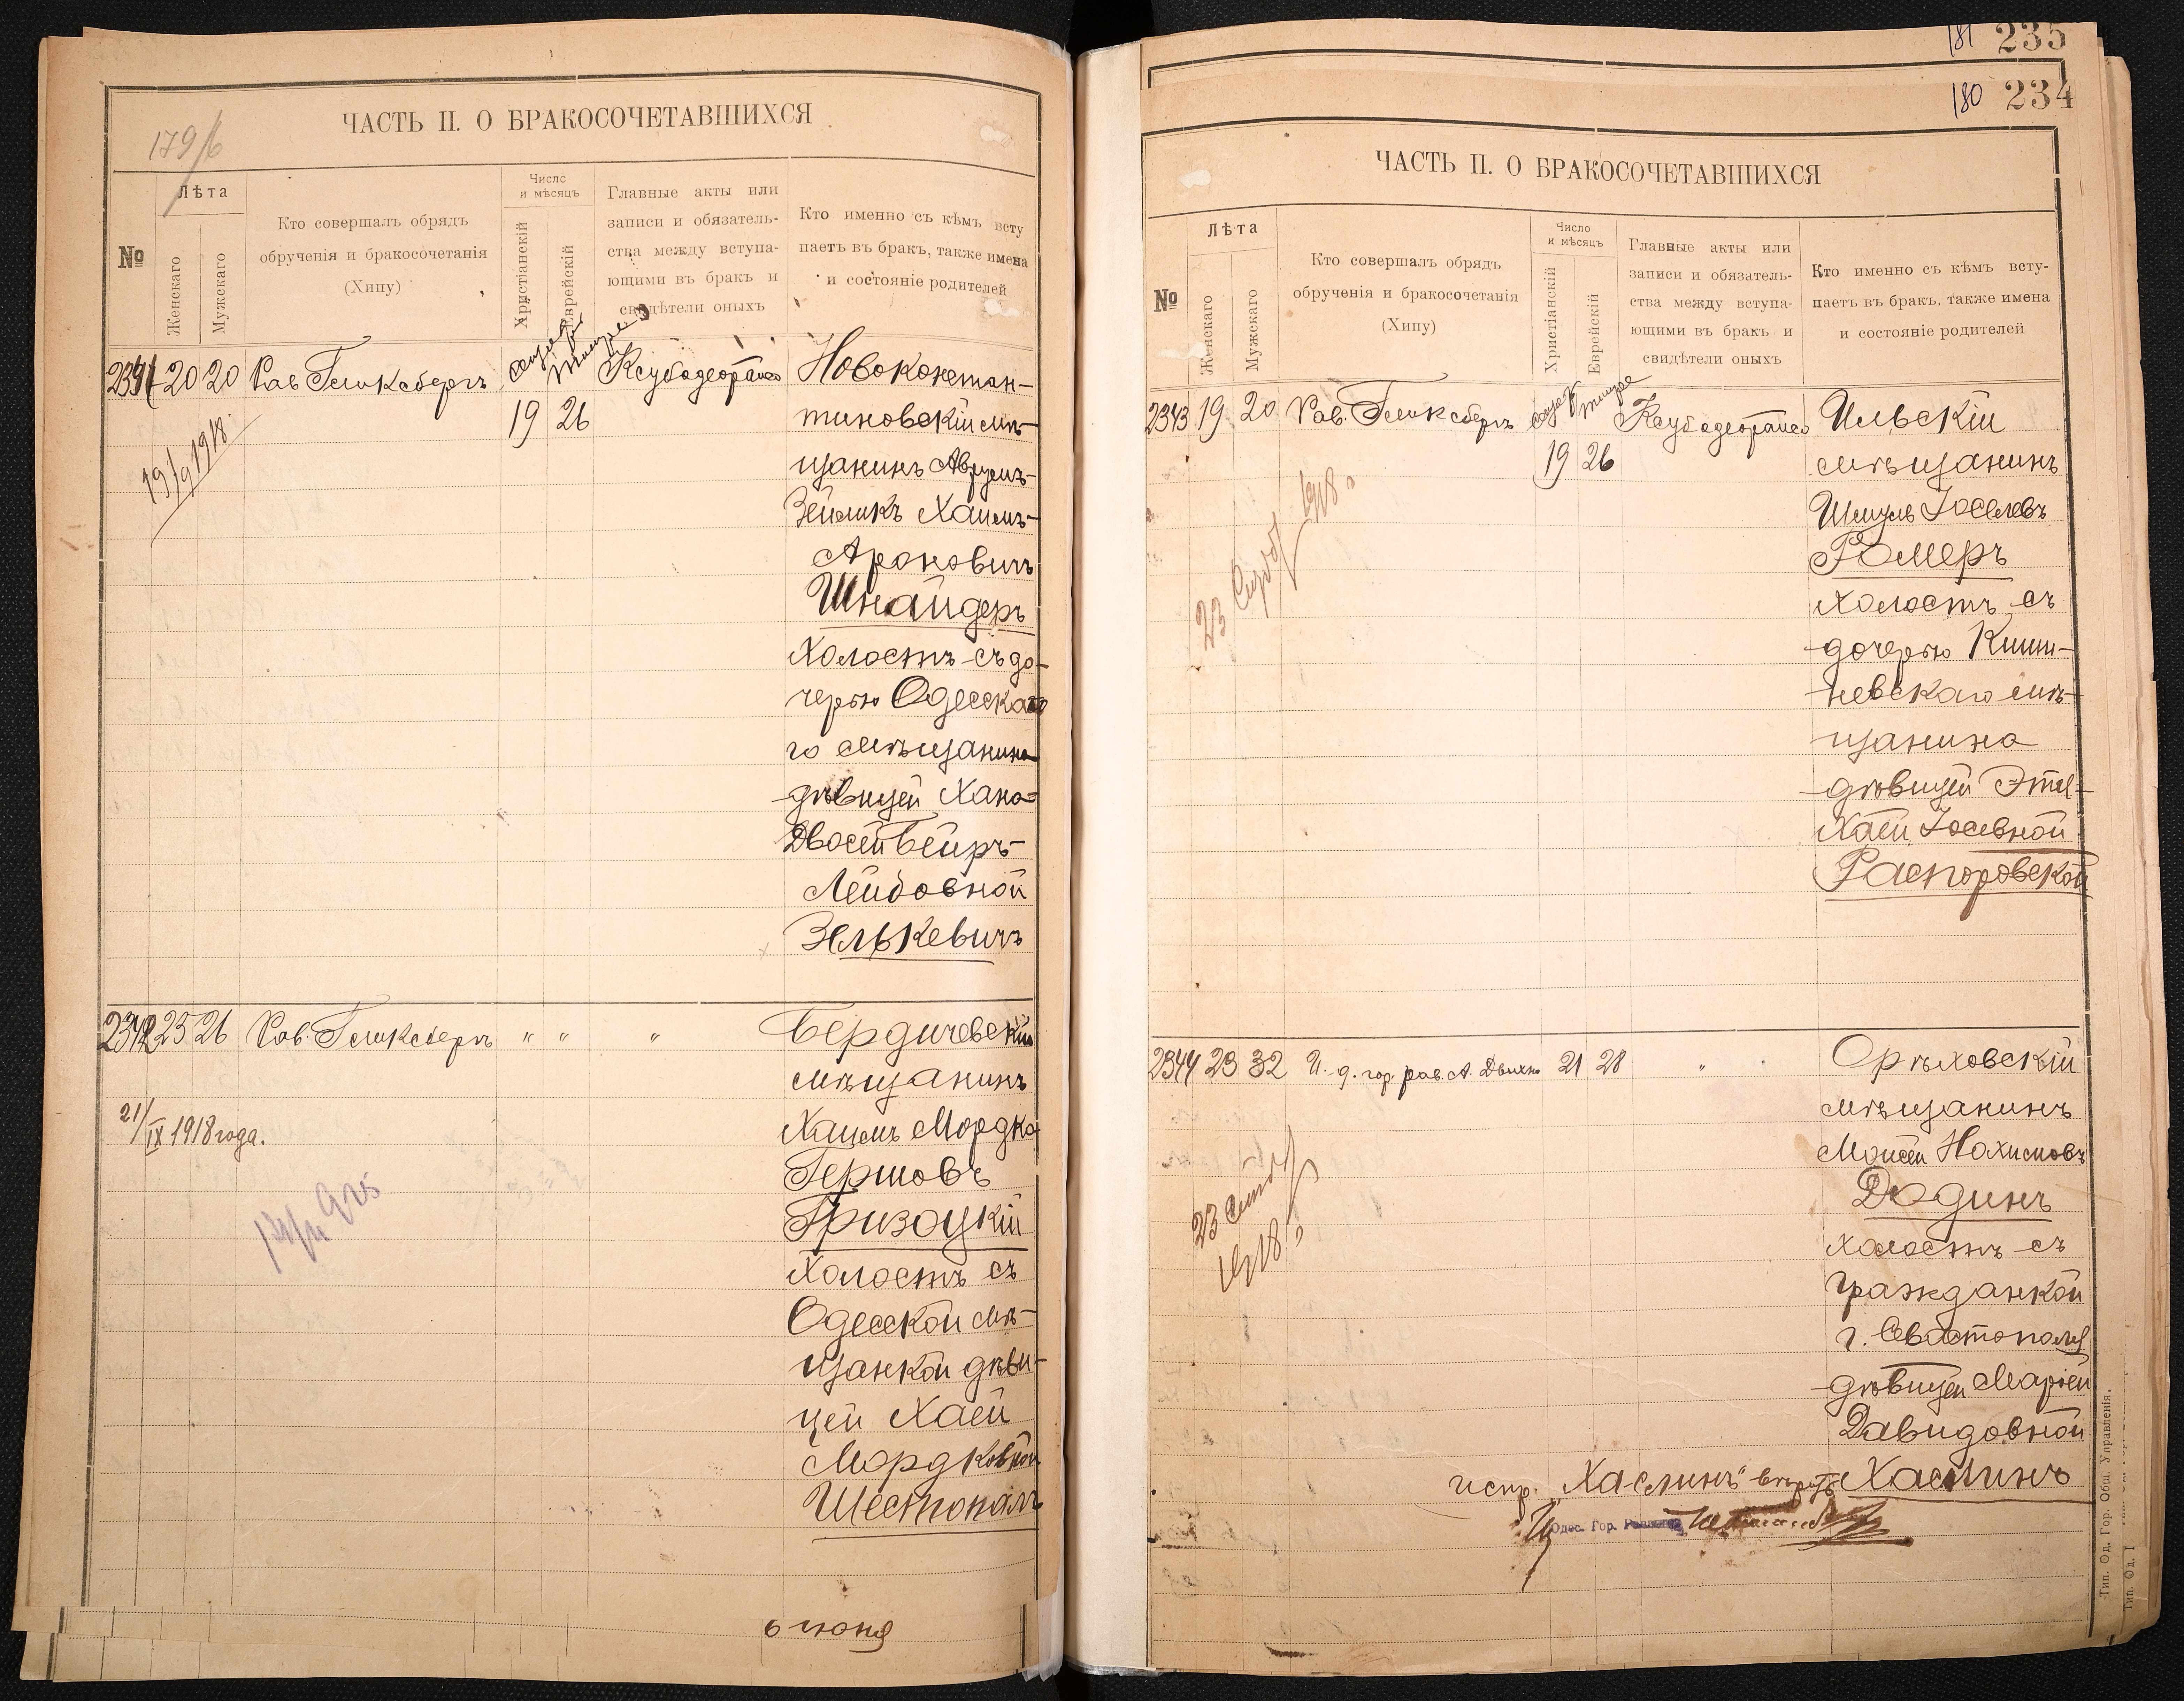 179/6
ЧАСТЬ II. О БРАКОСОЧЕТАВШИХСЯ
№
Лѣта
Женскаго
Мужскаго
Кто совершалъ обрядъ
обрученія и бракосочетанія
(Хипу)
Число
и мѣсяцъ
Христіанскій
Еврейскій
Главные акты или
записи и обязатель-
ства между вступа-
ющими въ бракъ и
свидѣтели оныхъ
Кто именно съ кѣмъ всту
паетъ въ бракъ, также имена
и состояніе родителей
2341 20 20 Рав. Гликсбергъ
19 26
19/9 1918.
Новоконстан-
тиновскій мѣ-
щанинъ Аврумъ-
Зейликъ Хаимъ-
Ароновичъ
Шнайдеръ
Холостъ съ до-
черью Одесска
го мѣщанина
дѣвицей Хана-
Двосей Бейръ-
Лейбовной
Зелькевичъ
2342 25 26 Рав. Гликсбергъ " " "
21/IX 1918 года.
Бердичевскій
мѣщанинъ
Хаимъ Мордко
Гершовъ
Гризоцкій
Холостъ съ
Одесской мѣ-
щанкой дѣви-
цей Хаей
Мордковной
Шестопалъ
6 июня
181 235
180 234
ЧАСТЬ II. О БРАКОСОЧЕТАВШИХСЯ
№
Лѣта
Женскаго
Мужскаго
Кто совершалъ обрядъ
обрученія и бракосочетанія
(Хипу)
Число
и мѣсяцъ
Христіанскій
Еврейскій
Главные акты или
записи и обязатель-
ства между вступа-
ющими въ бракъ и
свидѣтели оныхъ
Кто именно съ кѣмъ всту-
паетъ въ бракъ, также имена
и состояніе родителей
2343 19 20 Рав. Гликсбергъ
19 26
23 1918.
Ильскій
мѣщанинъ
Шмуль Іоселевъ
Ромеръ
холостъ съ
дочерью Киши-
невскаго мѣ-
щанина
дѣвицей Этель-
Хаей Іосевной
Распоровской
2344 23 32 И. д. гор. рав. А. 21 28 "
23 1918.
Орѣховскій
мѣщанинъ
Моисей Нахимовъ
Додинъ
холостъ съ
гражданкой
г. Севастополя
дѣвицей Маріей
Давидовной
Хасминъ
испр. „Хасминъ" вѣрить
Одес. Гор. Раввинъ
Тип. Од. Гор. Общ. Управленія.
Тип. Од. Г